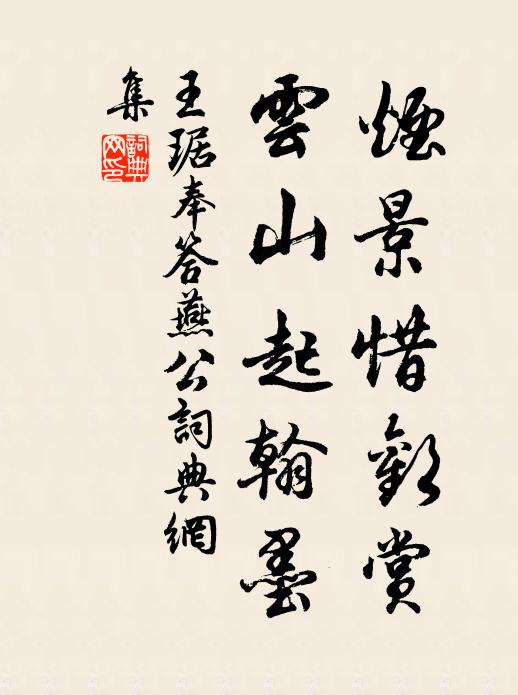 煙景惜歡賞
雲山起翰墨
王琚奉答燕公詞典網
集
詞典
网印